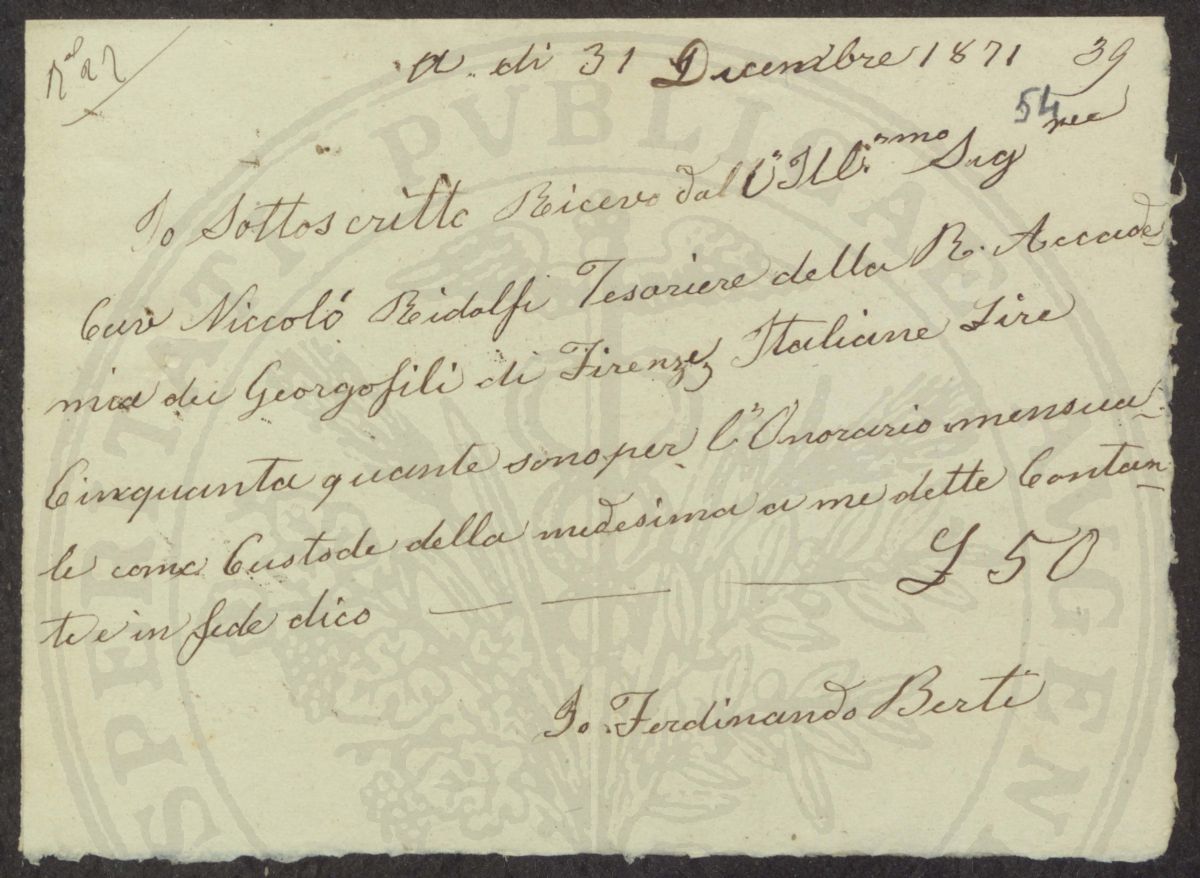 a di 31 Dicembre 1871 39
54
Io Sottoscritto Ricevo dal l'Ill.mo Sig nee
Cav Niccoló Ridolfi Tesoriere della R. Accade
mia dei Georgofili di Firenze Italiane Lire
Cinquanta quante sono per l'Onorario mensua
le come Custode della medesima a me dette Contan
ti e in fede dico £ 50
Io Ferdinando Berti
PROSPERITATI PVBLICAE AVGEN